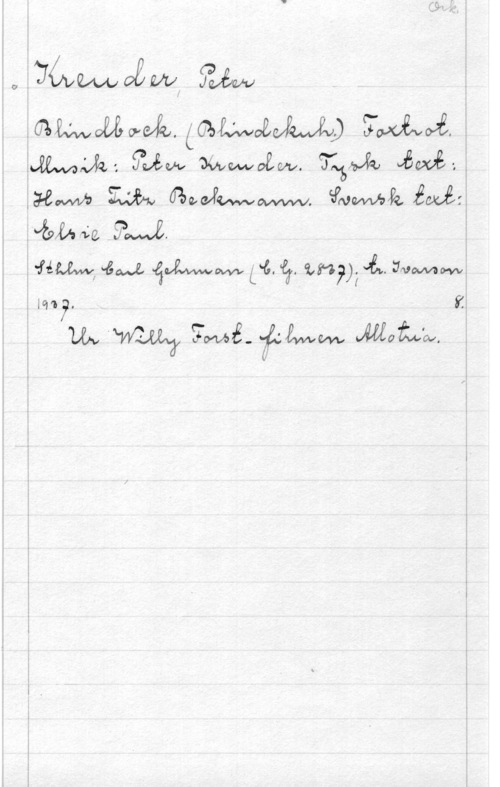 Ork.
Kreuder, Peter
Blindbock. (Blindekuh.) Foxtrot.
Musik: Peter Kreuder. Tysk text:
Hans Fritz Beckmann. Svensk text:
Elsie Paul.
Sthlm, Carl Gehrman (C. G. 2837); tr. Ivarson
1937. 8.
Ur Willy Forst-filmen Allotria.